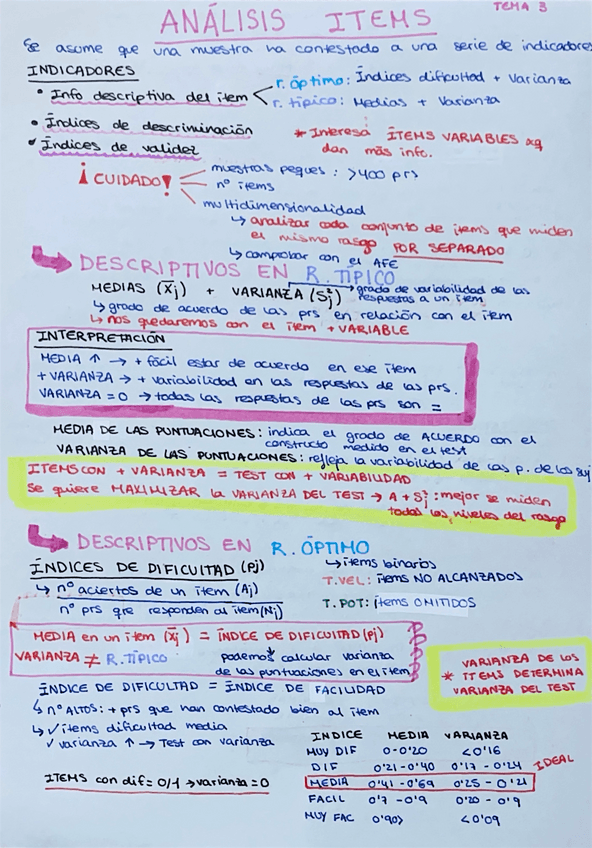 TEMA 3
ANÁLISIS ITEMS
Se asume que una muestra ha contestado a una serie de indicadores
INDICADORES
• Info descriptiva del ítem
r. Óptimo: Índices dificultad + Varianza
r. típico: Medias + Varianza
• Índices de discriminación
• Índices de validez
* Interesa ÍTEMS VARIABLES xq
dan más info.
¡CUIDADO!
muestras peques: >400 prs
nº items
multidimensionalidad
↳ analizar cada conjunto de items que miden
el mismo rasgo POR SEPARADO
↳ comprobar con el AFE
↳ DESCRIPTIVOS EN R. TÍPICO
MEDIAS (X̄j) + VARIANZA (S²j) → grado de variabilidad de las
respuestas a un ítem
↳ grado de acuerdo de las prs en relación con el ítem
↳ nos quedaremos con el item + VARIABLE
INTERPRETACIÓN
MEDIA ↑ → + fácil estar de acuerdo en ese ítem
+ VARIANZA → + variabilidad en las respuestas de las prs.
VARIANZA = 0 → todas las respuestas de las prs son =
MEDIA DE LAS PUNTUACIONES: indica el grado de ACUERDO con el
constructo medido en el test
VARIANZA DE LAS PUNTUACIONES: refleja la variabilidad de las p. de los suj
ITEMS CON + VARIANZA = TEST CON + VARIABILIDAD
Se quiere MAXIMIZAR la VARIANZA DEL TEST → A + S²j: mejor se miden
todos los niveles del rasgo
↳ DESCRIPTIVOS EN R. ÓPTIMO
↳ items binarios
ÍNDICES DE DIFICULTAD (pj)
T. VEL: ítems NO ALCANZADOS
↳ nº aciertos de un ítem (Aj)
nº prs que responden al ítem (Nj)
T. POT: ítems OMITIDOS
MEDIA en un ítem (X̄j) = ÍNDICE DE DIFICULTAD (pj)
VARIANZA ≠ R. TÍPICO
podemos calcular varianza
de las puntuaciones en el ítem
VARIANZA DE LOS
* ITEMS DETERMINA
VARIANZA DEL TEST
ÍNDICE DE DIFICULTAD = ÍNDICE DE FACILIDAD
↳ nº ALTOS: + prs que han contestado bien al ítem
↳ ✓ items dificultad media
✓ varianza ↑ → Test con varianza
ITEMS con dif = 0/1 → varianza = 0
INDICE MEDIA VARIANZA
MUY DIF 0-0'20 <0'16
DIF 0'21-0'40 0'17-0'24
IDEAL
MEDIA 0'41-0'69 0'25-0'21
FACIL 0'7-0'9 0'20-0'9
MUY FAC 0'90> <0'09